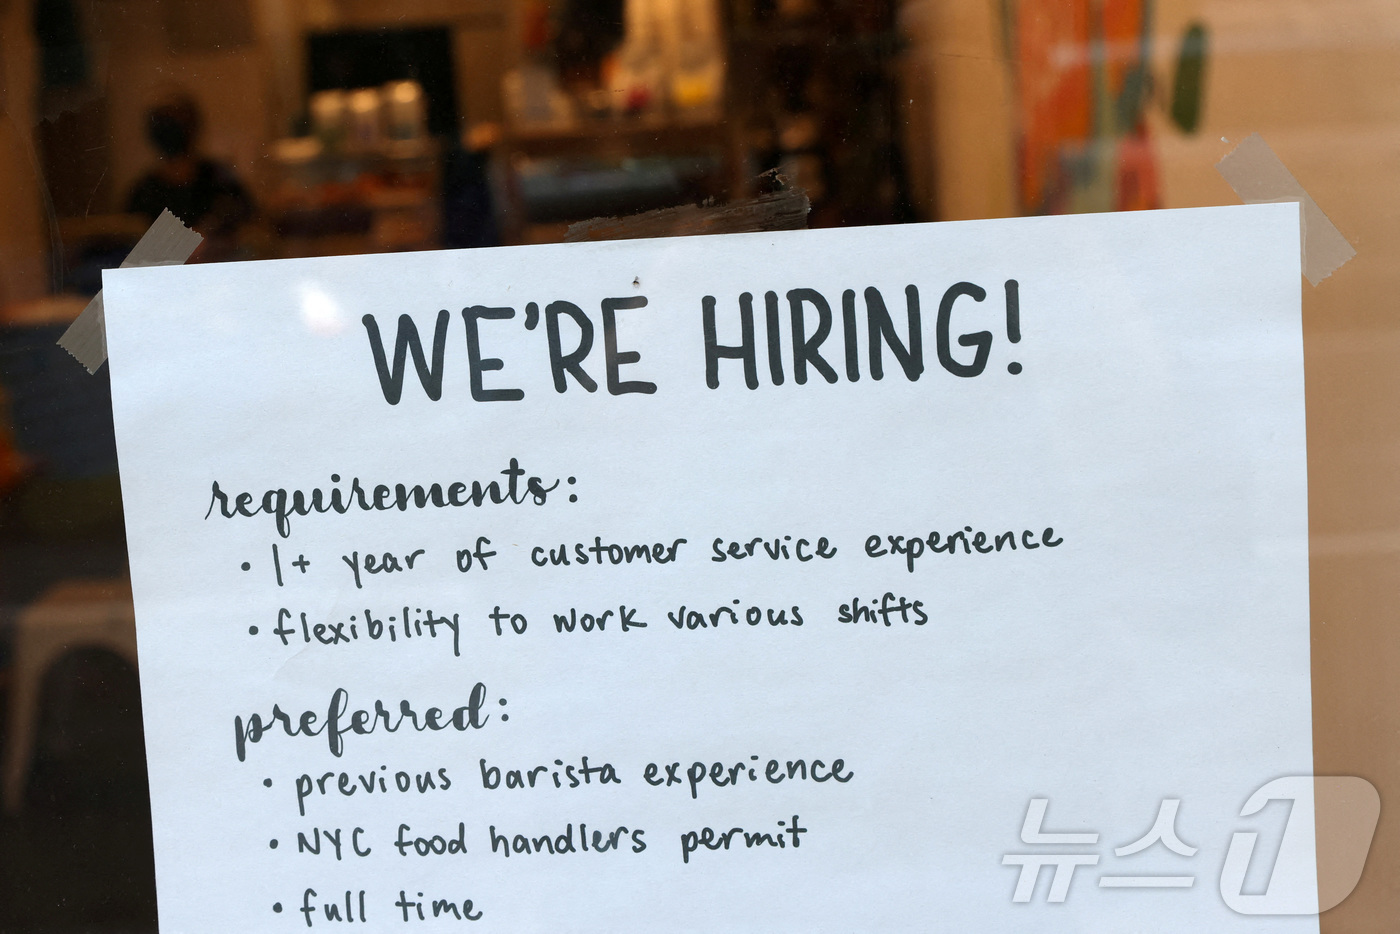 WE'RE HIRING!
requirements:
• 1+ year of customer service experience
• flexibility to work various shifts
preferred:
• previous barista experience
• NYC food handlers permit
• full time
뉴스1